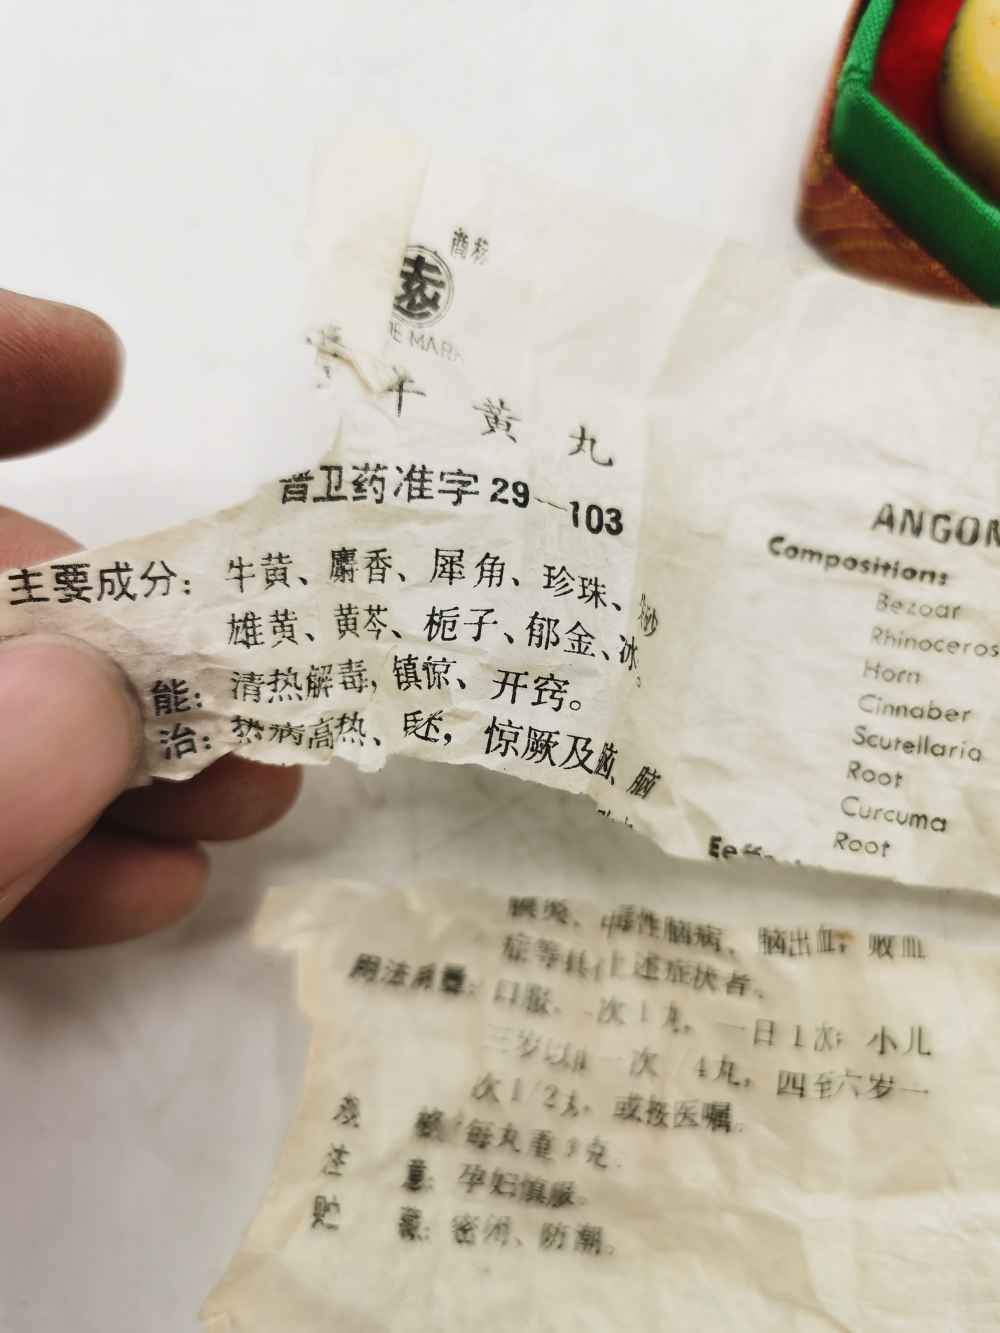 商标
MARK
黄丸
卫药准字29—103
主要成分：牛黄、麝香、犀角、珍珠、
雄黄、黄芩、栀子、郁金、冰
能：清热解毒，镇惊、开窍。
治：热病高热、惊厥及脑、脑
ANGON
Compositions
Bezoar
Rhinoceros
Horn
Cinnaber
Scutellaria
Root
Curcuma
Root
性脑病、脑出血，败血
症等具上述症状者。
用法用量：口服，一次1丸，一日1次；小儿
三岁以内一次1/4丸，四至六岁一
次1/2丸，或按医嘱。
规格：每丸重3克。
注意：孕妇慎服。
贮藏：密闭、防潮。